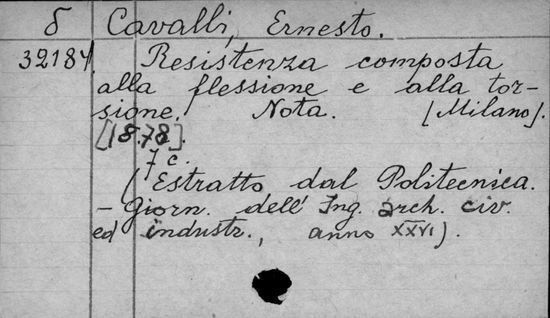 δ Cavalli, Ernesto.
32184. Resistenza composta
alla flessione e alla tor-
sione. Nota. [Milano].
[1878].
7 c.
(Estratto dal Politecnica.
- Giorn. dell' Ing. arch. civ.
ed industr., anno XXVI).